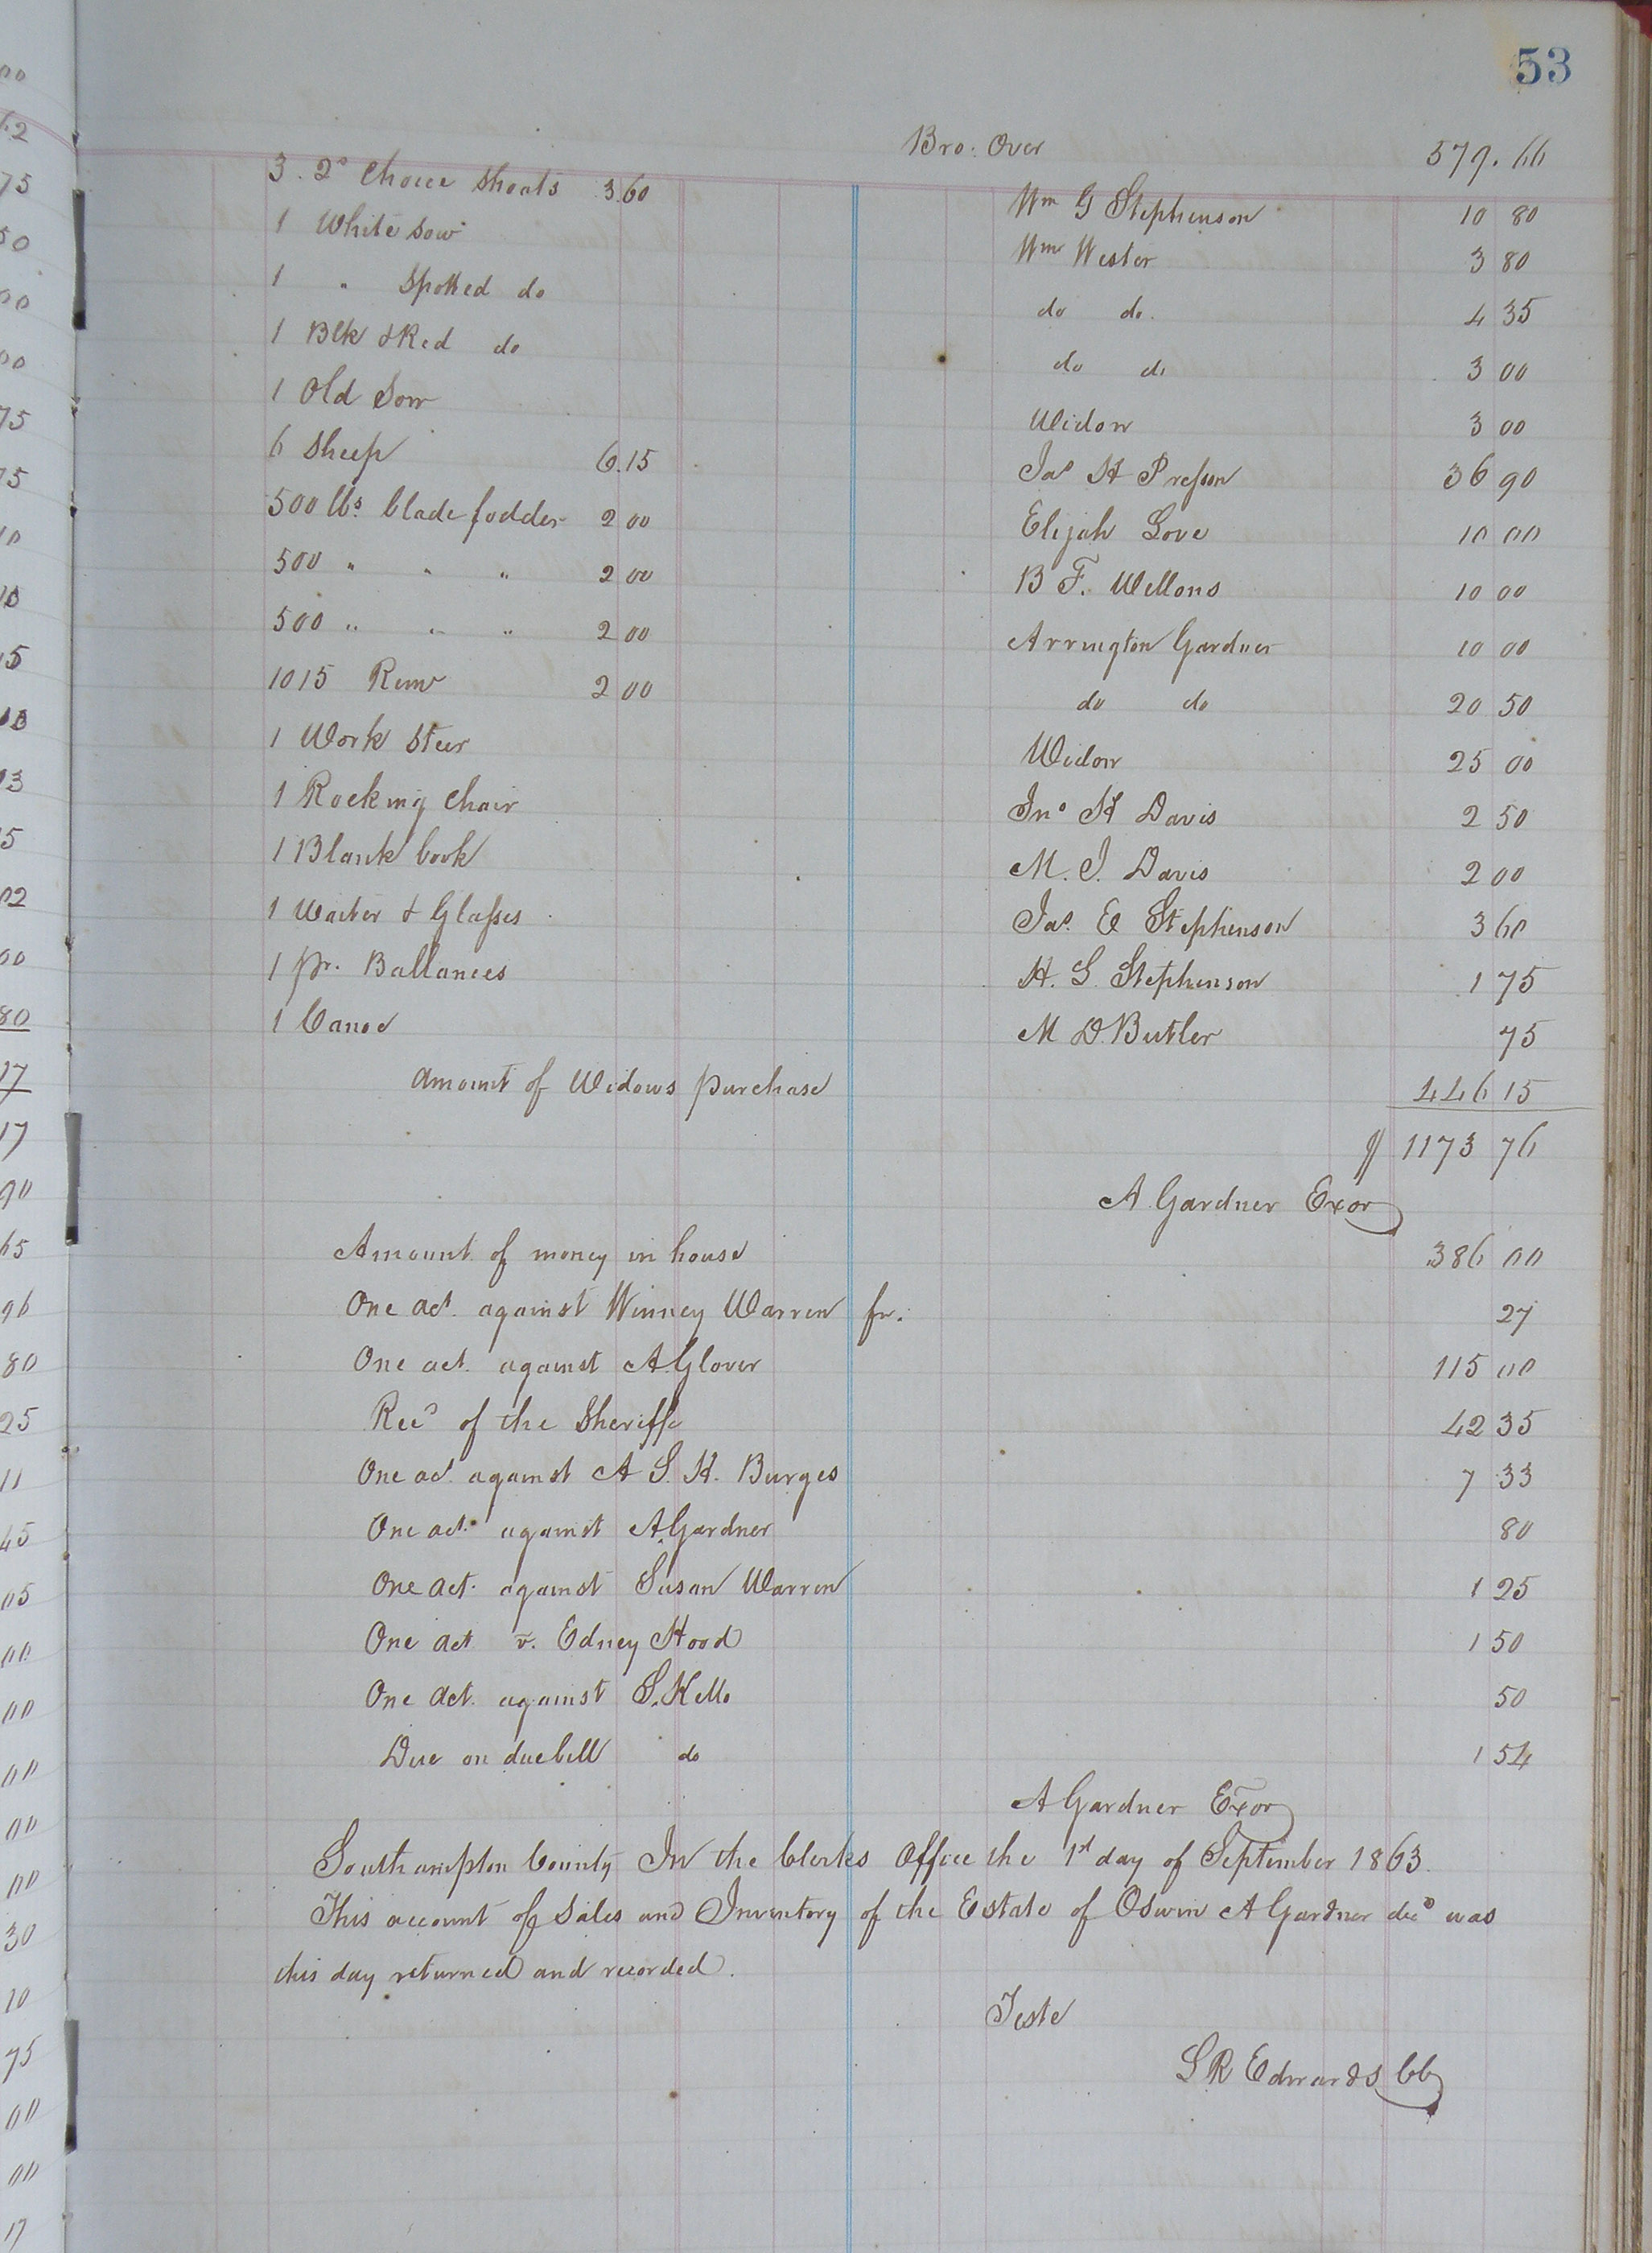 53
Bro. Over 579.66
3. 2d Choice Shoats 3.60 Wm G Stephenson 10 80
1 White Sow Wm Wester 3 80
1 " Spotted do do do. 4 35
1 Blk & Red do do do 3 00
1 Old Sow Widow 3 00
6 Sheep 6.15 Jas H Presson 36 90
500 lbs. blade fodder 2 00 Elijah Love 10 00
500 " " " 2 00 B F. Wellons 10 00
500 " " " 2 00 Arrington Gardner 10 00
1015 Remr 2 00 do do 20 50
1 Work Steer Widow 25 00
1 Rocking Chair Jno H Davis 2 50
1 Blank book M. J. Davis 2 00
1 Waiter & Glasses Jas. E Stephenson 3 60
1 pr. Ballances H. G. Stephenson 1 75
1 Canoe M D. Butler 75
Amount of Widows purchase 446 15
$ 1173 76
A Gardner Exor
Amount of money in house 386 00
One act. against Winney Warren fn. 27
One act. against A. Glover 115 00
Recd of the Sheriff 42 35
One act. against A S. H. Burges 7 33
One act. against A. Gardner 80
One act. against Susan Warren 1 25
One act v. Edney Hood 1 50
One act. against S. Kello 50
Due on due bill do 1 54
A Gardner Exor
Southampton County In the Clerks Office the 1st day of September 1863.
This account of Sales and Inventory of the Estate of Oswin A Gardner decd was
this day returned and recorded.
Teste
L R Edwards CC